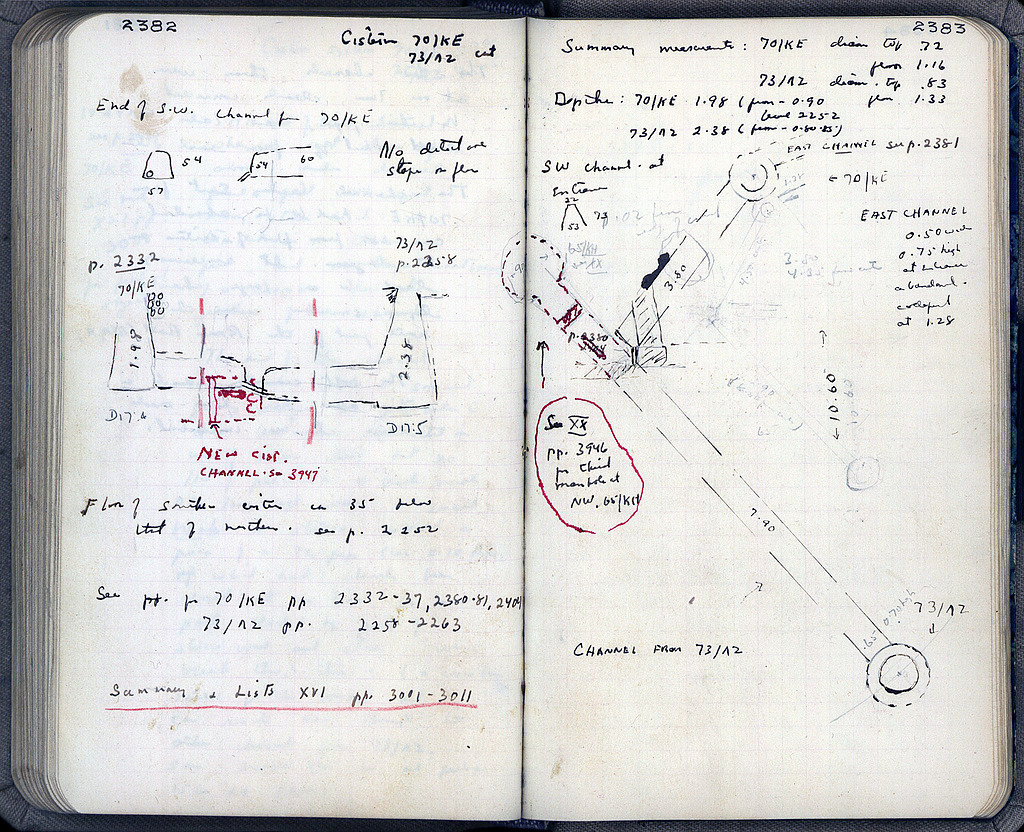 2382
Cistern 70/KE
73/Λ2 cut
End of S.W. Channel from 70/KE
54
57
54
60
No detectable
slope on floor
p. 2332
70/KE
73/Λ2
p. 2258
1.98
2.38
D17:4
D17:5
NEW CIST.
CHANNEL. SEE 3947
Floor of southern cistern is 35 below
that of northern. see p. 2252
See pp. for 70/KE pp 2332-37, 2380-81, 2404
73/Λ2 pp. 2258-2263
Summary & Lists XVI pp. 3001-3011
2383
Summary measurements: 70/KE diam top .72
floor 1.16
73/Λ2 diam. top .83
floor 1.33
Depths: 70/KE 1.98 (from -0.90
level 2252
73/Λ2 2.38 (from -0.80.85)
EAST CHANNEL see p. 2381
SW channel at
Entrance
22
73
53
70/KE
EAST CHANNEL
0.50 wide
0.75 high
at entrance
abandoned
at 1.28
65/KH
3.80
p. 2380
10.60
See XX
pp. 3946
for third
manhole at
NW. 65/KH
7.90
.65 0.70 high
73/Λ2
CHANNEL FROM 73/Λ2